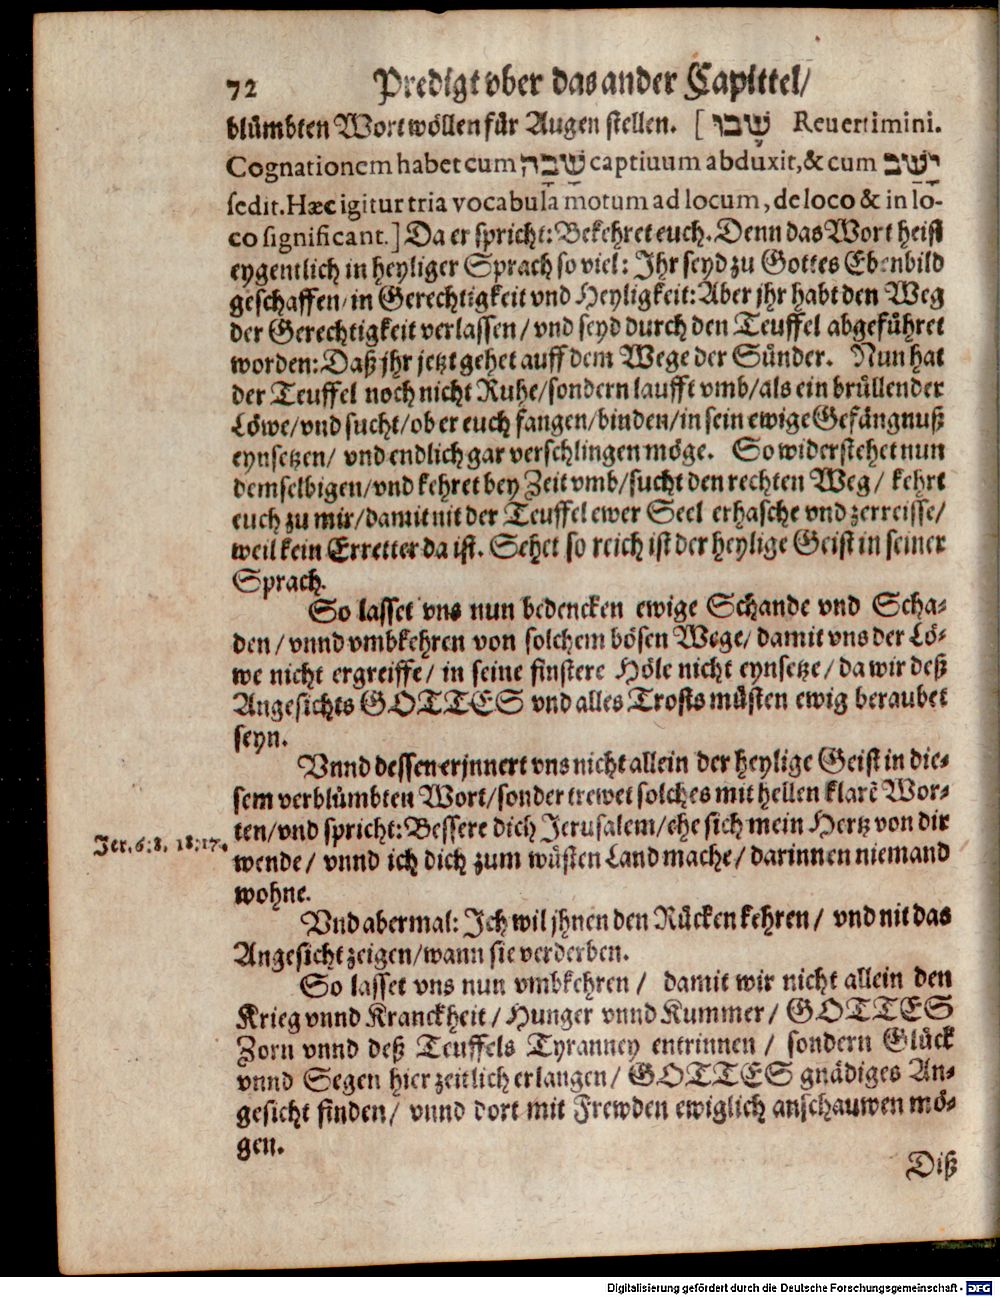 72 Predigt vber das ander Capittel/
blümbten Wort wöllen für Augen stellen. [ שָבוּ Reuertimini.
Cognationem habet cum שָבָה captiuum abduxit, & cum יָשַב
sedit. Hæc igitur tria vocabula motum ad locum, de loco & in lo-
co significant.] Da er spricht: Bekehret euch. Denn das Wort heist
eygentlich in heyliger Sprach so viel: Ihr seyd zu Gottes Ebenbild
geschaffen/ in Gerechtigkeit vnd Heyligkeit: Aber jhr habt den Weg
der Gerechtigkeit verlassen/ vnd seyd durch den Teuffel abgeführet
worden: Daß jhr jetzt gehet auff dem Wege der Sünder. Nun hat
der Teuffel noch nicht Ruhe/ sondern laufft vmb/ als ein brüllender
Löwe/ vnd sucht/ ob er euch fangen/ binden/ in sein ewige Gefängnuß
eynsetzen/ vnd endlich gar verschlingen möge. So widerstehet nun
demselbigen/ vnd kehret bey Zeit vmb/ sucht den rechten Weg/ kehrt
euch zu mir/ damit nit der Teuffel ewer Seel erhasche vnd zerreisse/
weil kein Erretter da ist. Sehet so reich ist der heylige Geist in seiner
Sprach.
So lasset vns nun bedencken ewige Schande vnd Scha-
den/ vnnd vmbkehren von solchem bösen Wege/ damit vns der Lö-
we nicht ergreiffe/ in seine finstere Höle nicht eynsetze/ da wir deß
Angesichts GOTTES vnd alles Trosts müsten ewig beraubet
seyn.
Vnnd dessen erjnnert vns nicht allein der heylige Geist in die-
sem verblümbten Wort/ sonder trewet solches mit hellen klarẽ Wor-
ten/ vnd spricht: Bessere dich Jerusalem/ ehe sich mein Hertz von dir
Jer. 6:8. 18:17.
wende/ vnnd ich dich zum wüsten Land mache/ darinnen niemand
wohne.
Vnd abermal: Ich wil jhnen den Rücken kehren/ vnd nit das
Angesicht zeigen/ wann sie verderben.
So lasset vns nun vmbkehren/ damit wir nicht allein den
Krieg vnnd Kranckheit/ Hunger vnnd Kummer/ GOTTES
Zorn vnnd deß Teuffels Tyranney entrinnen/ sondern Glück
vnnd Segen hier zeitlich erlangen/ GOTTES gnädiges An-
gesicht finden/ vnnd dort mit Frewden ewiglich anschauwen mö-
gen.
Diß
Digitalisierung gefördert durch die Deutsche Forschungsgemeinschaft - DFG